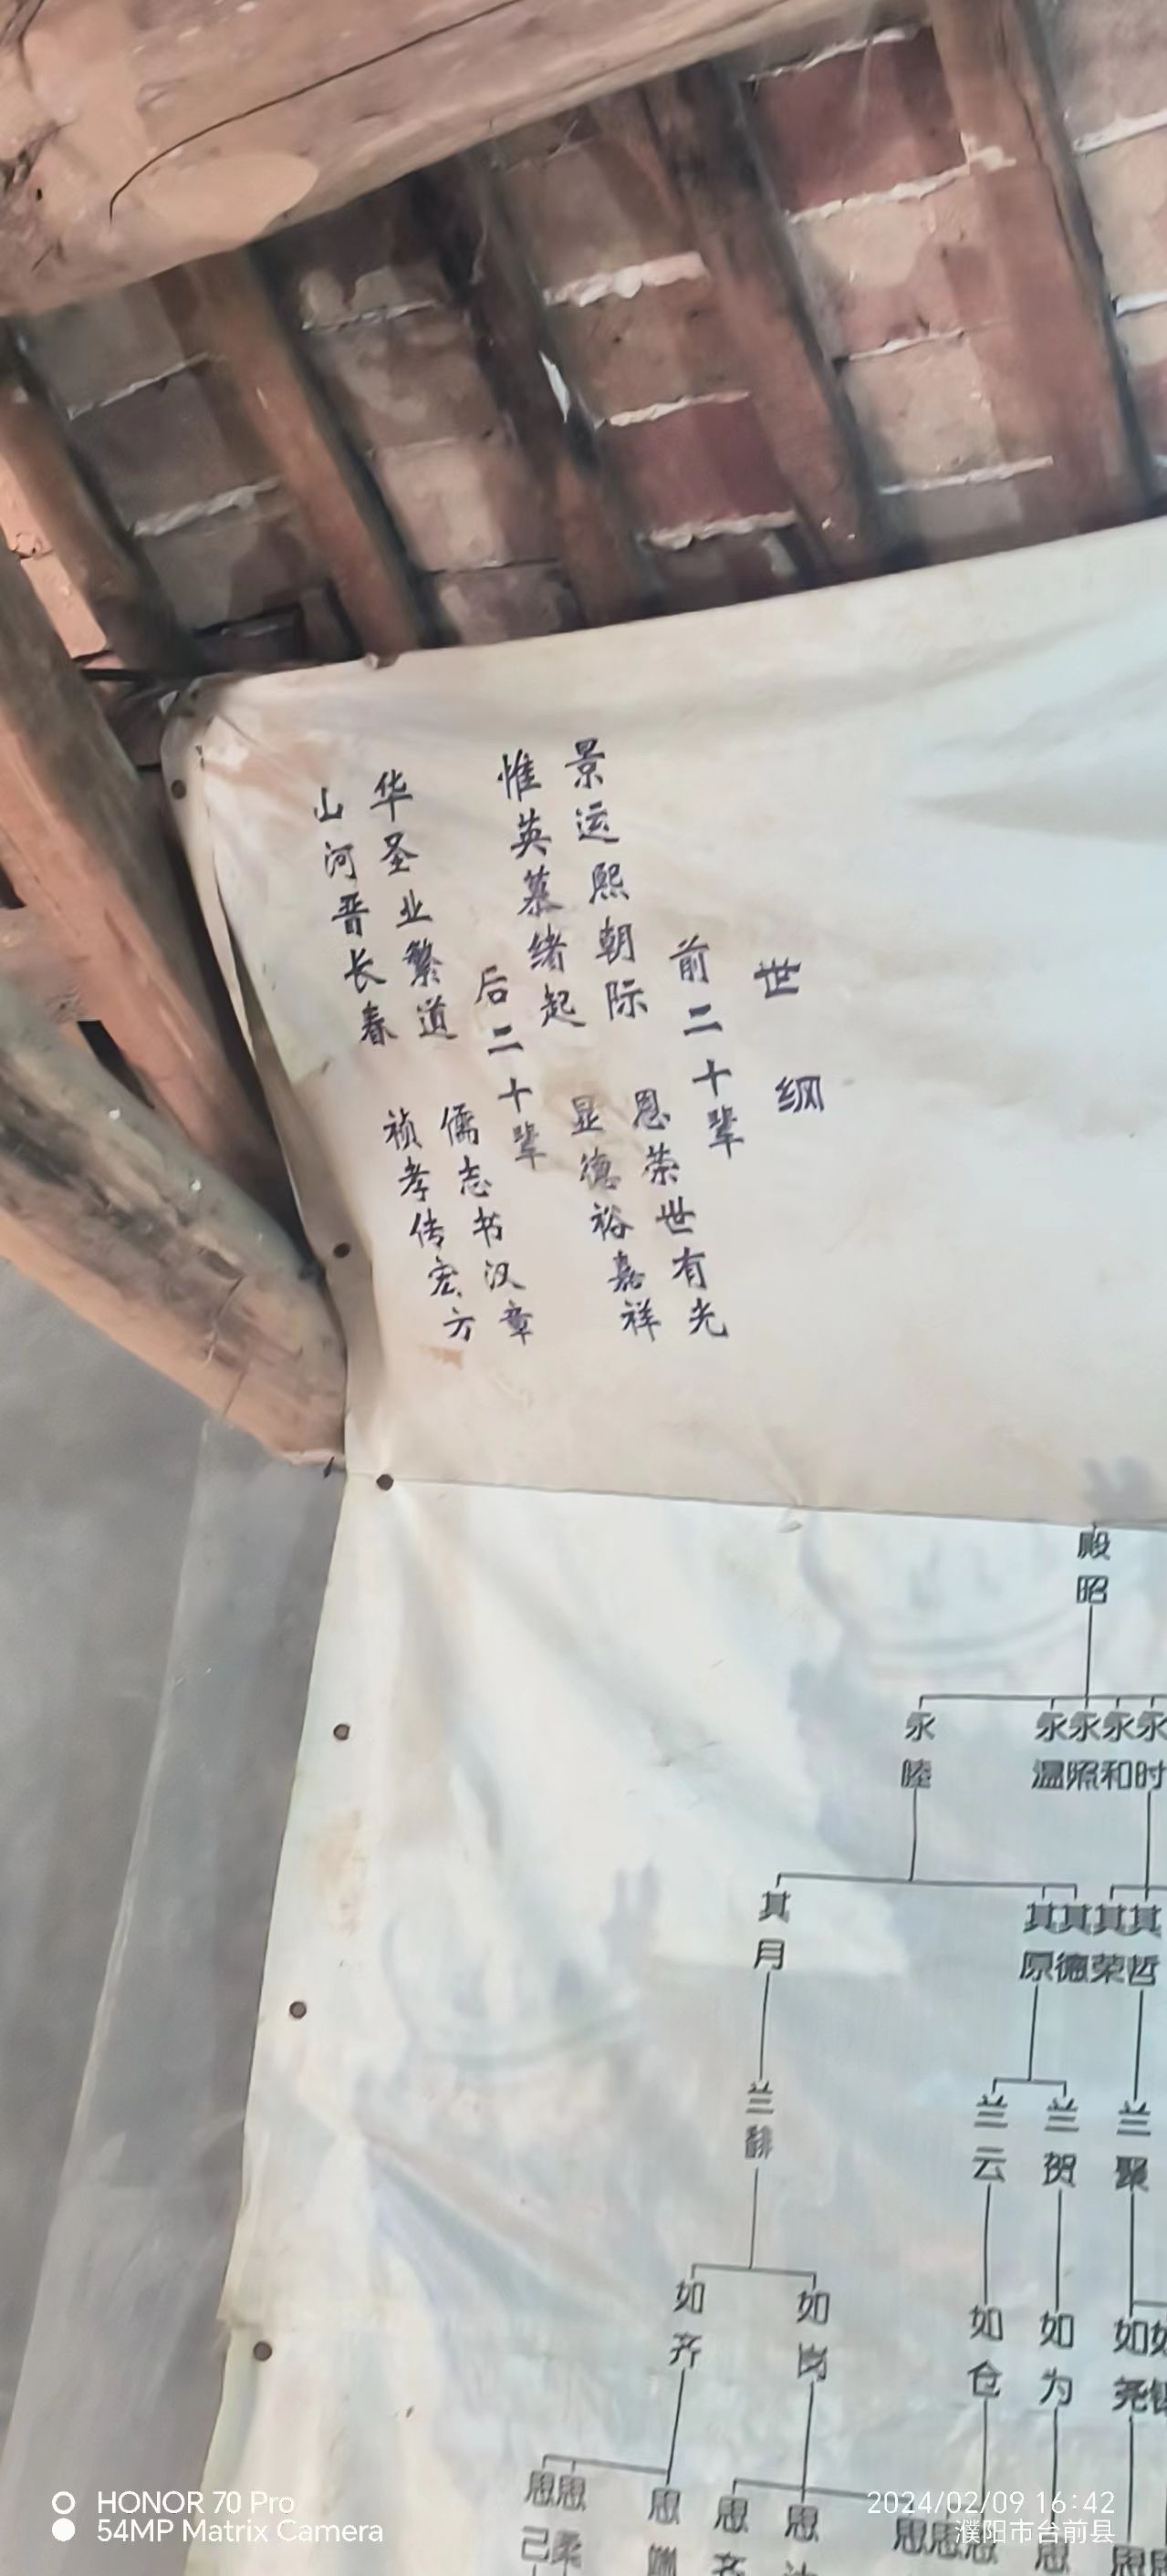 世纲
前二十辈
景运熙朝际 恩荣世有光
惟英慕绪起 显德裕嘉祥
后二十辈
华圣业繁道 儒志书汉章
山河晋长春 祯孝传宏方
殿昭
永睦 永温 永照 永和 永时
其月 其原 其德 其荣 其哲
兰 兰云 兰贺 兰聚
如齐 如岗 如仓 如为 如尧
思己 思柔 思 思齐 思 思 思 思 思 思
HONOR 70 Pro
54MP Matrix Camera
2024/02/09 16:42
濮阳市台前县